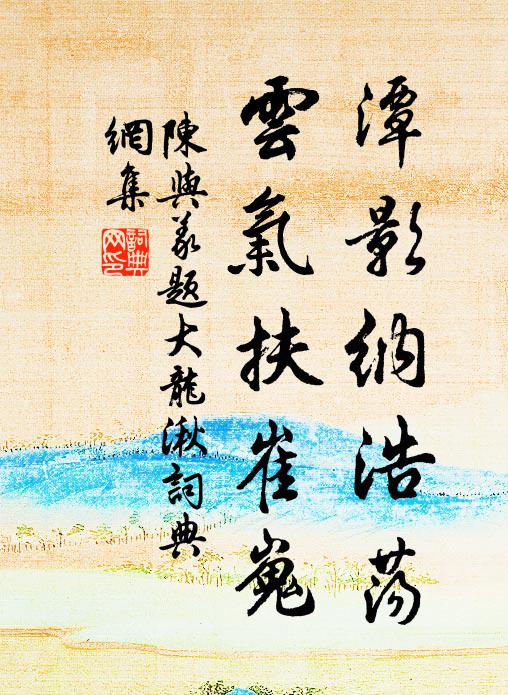 潭影納浩蕩
雲氣扶崔嵬
陳與義題大龍湫詞典
網集
詞典網印